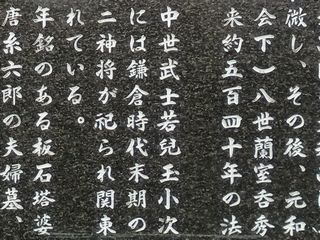 微し、その後、元和
会下）八世蘭室呑秀
来約五百四十年の法
中世武士若児玉小次
には鎌倉時代末期の
二神将が祀られ関東
れている。
年銘のある板石塔婆
唐糸六郎の夫婦墓、